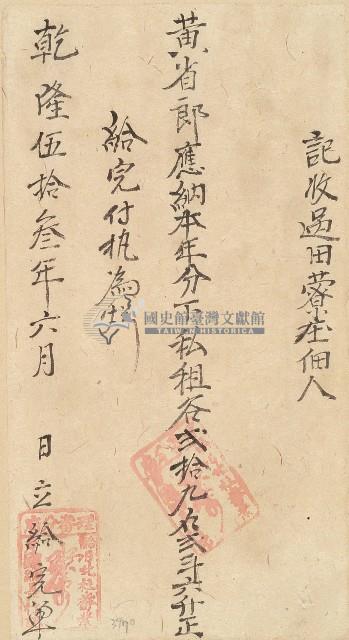 記收過田藔庄佃人
黃省郎應納本年分下私租谷弍拾九石弍斗六升正
給完付执為炤
乾隆伍拾叁年六月　日立給完单
國史館臺灣文獻館
TAIWAN HISTORICA